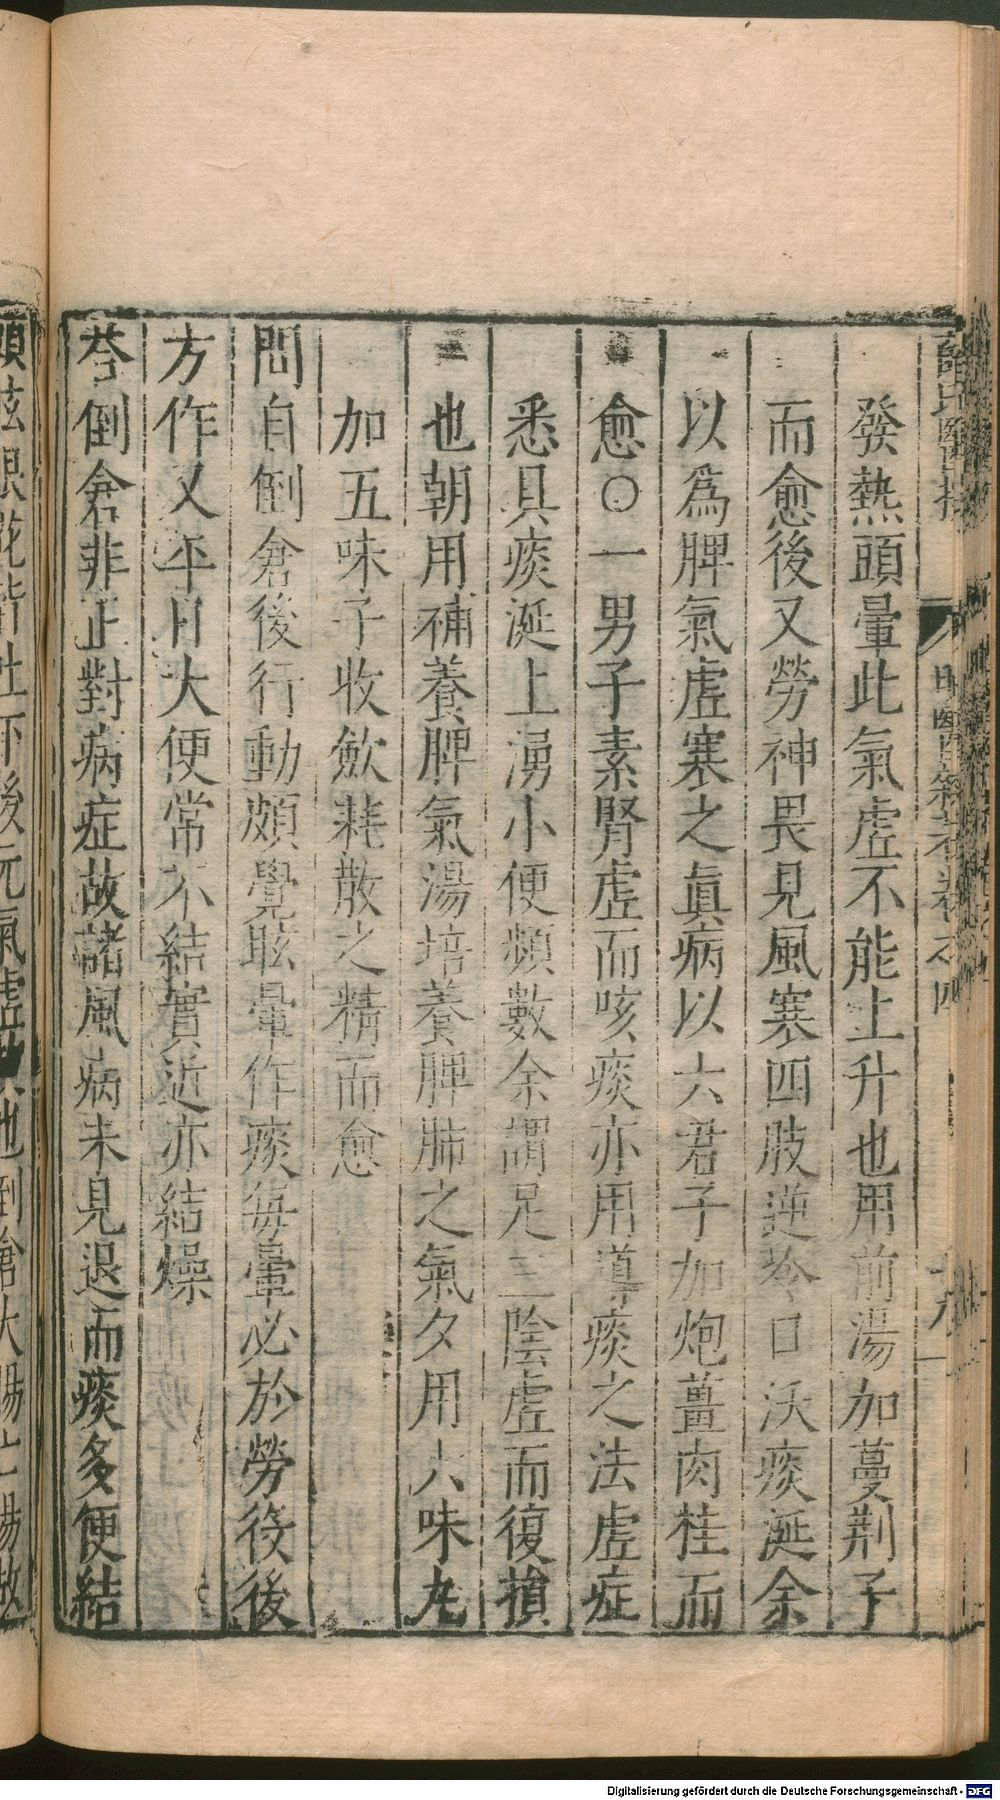 發熱頭暈此氣虛不能上升也用前湯加蔓荆子
而愈後又勞神畏見風寒四肢逆冷口沃痰涎余
以爲脾氣虛寒之眞病以六君子加炮薑肉桂而
愈○一男子素腎虛而咳痰亦用導痰之法虛症
悉具痰涎上湧小便頻數余謂足三陰虛而復損
也朝用補養脾氣湯培養脾肺之氣夕用六味丸
加五味子收斂耗散之精而愈
問自倒倉後行動頗覺眩暈作痰每暈必於勞役後
方作又平日大便常不結實近亦結燥
荅倒倉非正對病症故諸風病未見退而痰多便結
頭眩眼花皆吐下後元氣虛 也倒倉大傷七傷故
薛氏醫按
明醫雜著卷之四
Digitalisierung gefördert durch die Deutsche Forschungsgemeinschaft - DFG